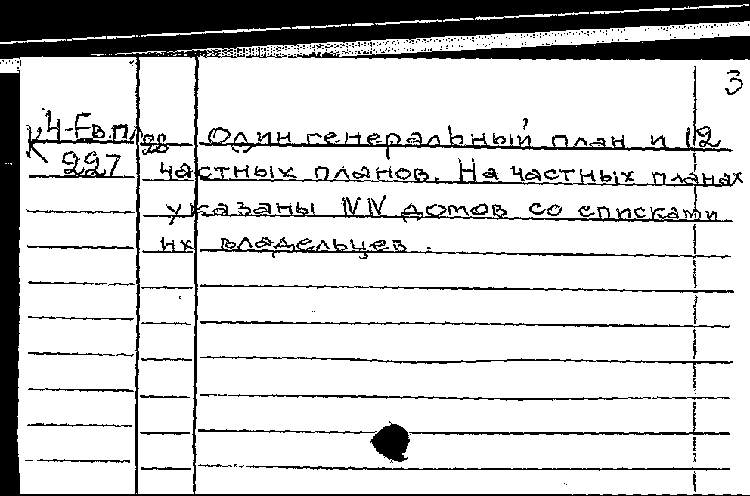 3
К 4-Ев.пл. Один генеральный план и 12
227 частных планов. На частных планах
указаны NN домов со списками
их владельцев.